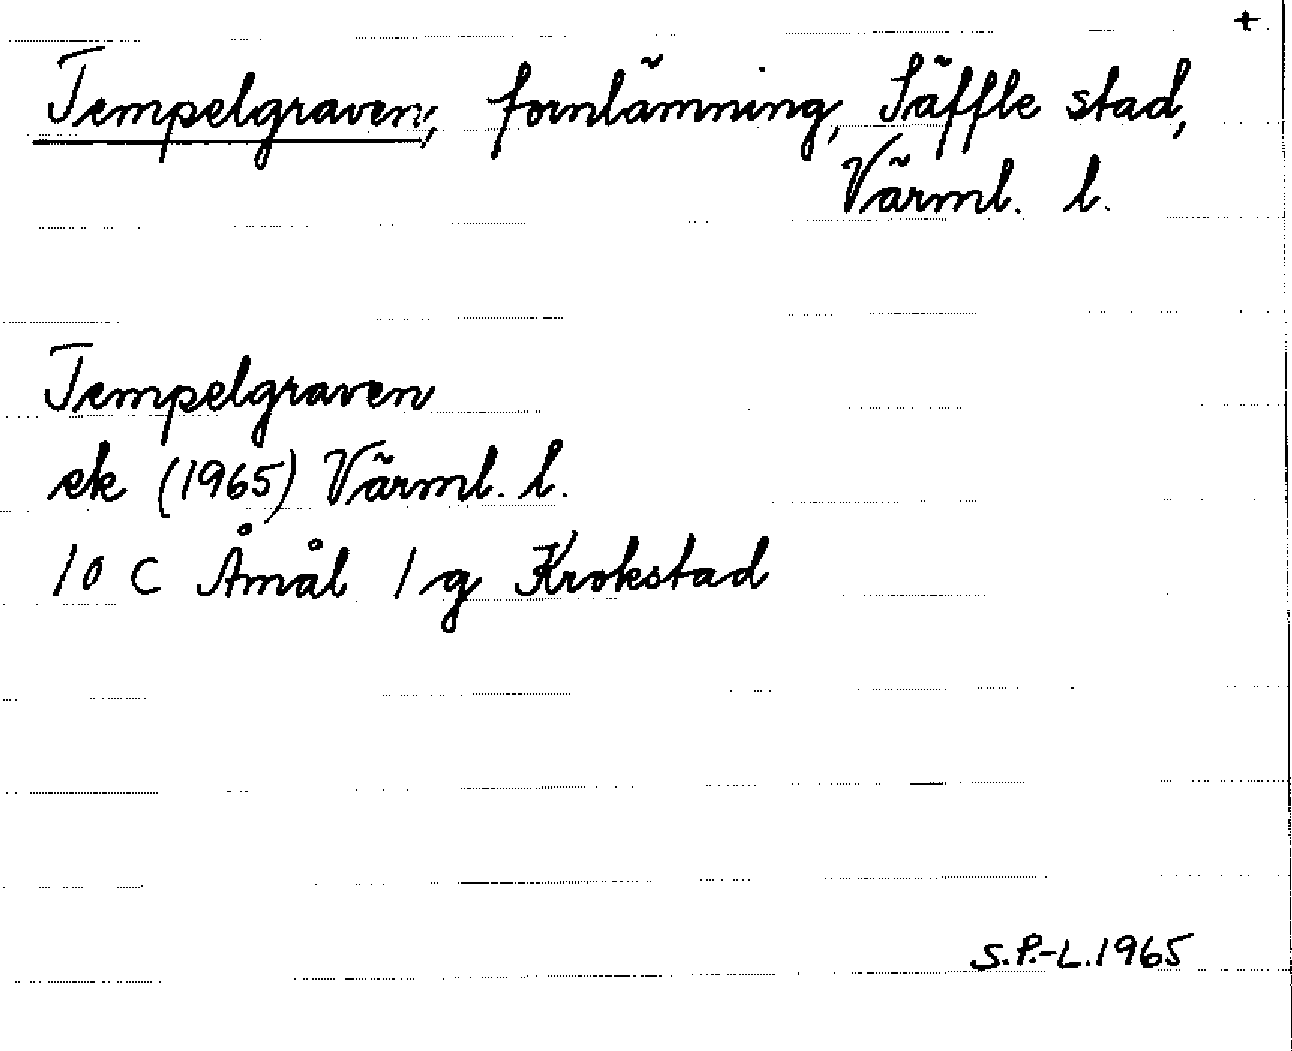 +
Tempelgraven, fornlämning, Säffle stad,
Värml. l.
Tempelgraven
ek (1965) Värml. l.
10 C Åmål 1 g Krokstad
S.P.-L. 1965